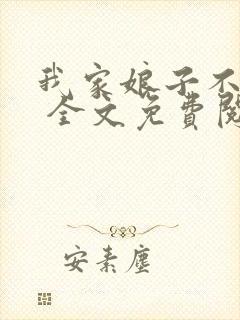 我家娘子不
全文免費閱
安素塵